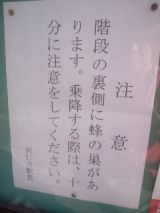 注意
階段の裏側に蜂の巣があ
ります。乗降する際は、十
分に注意をしてください。